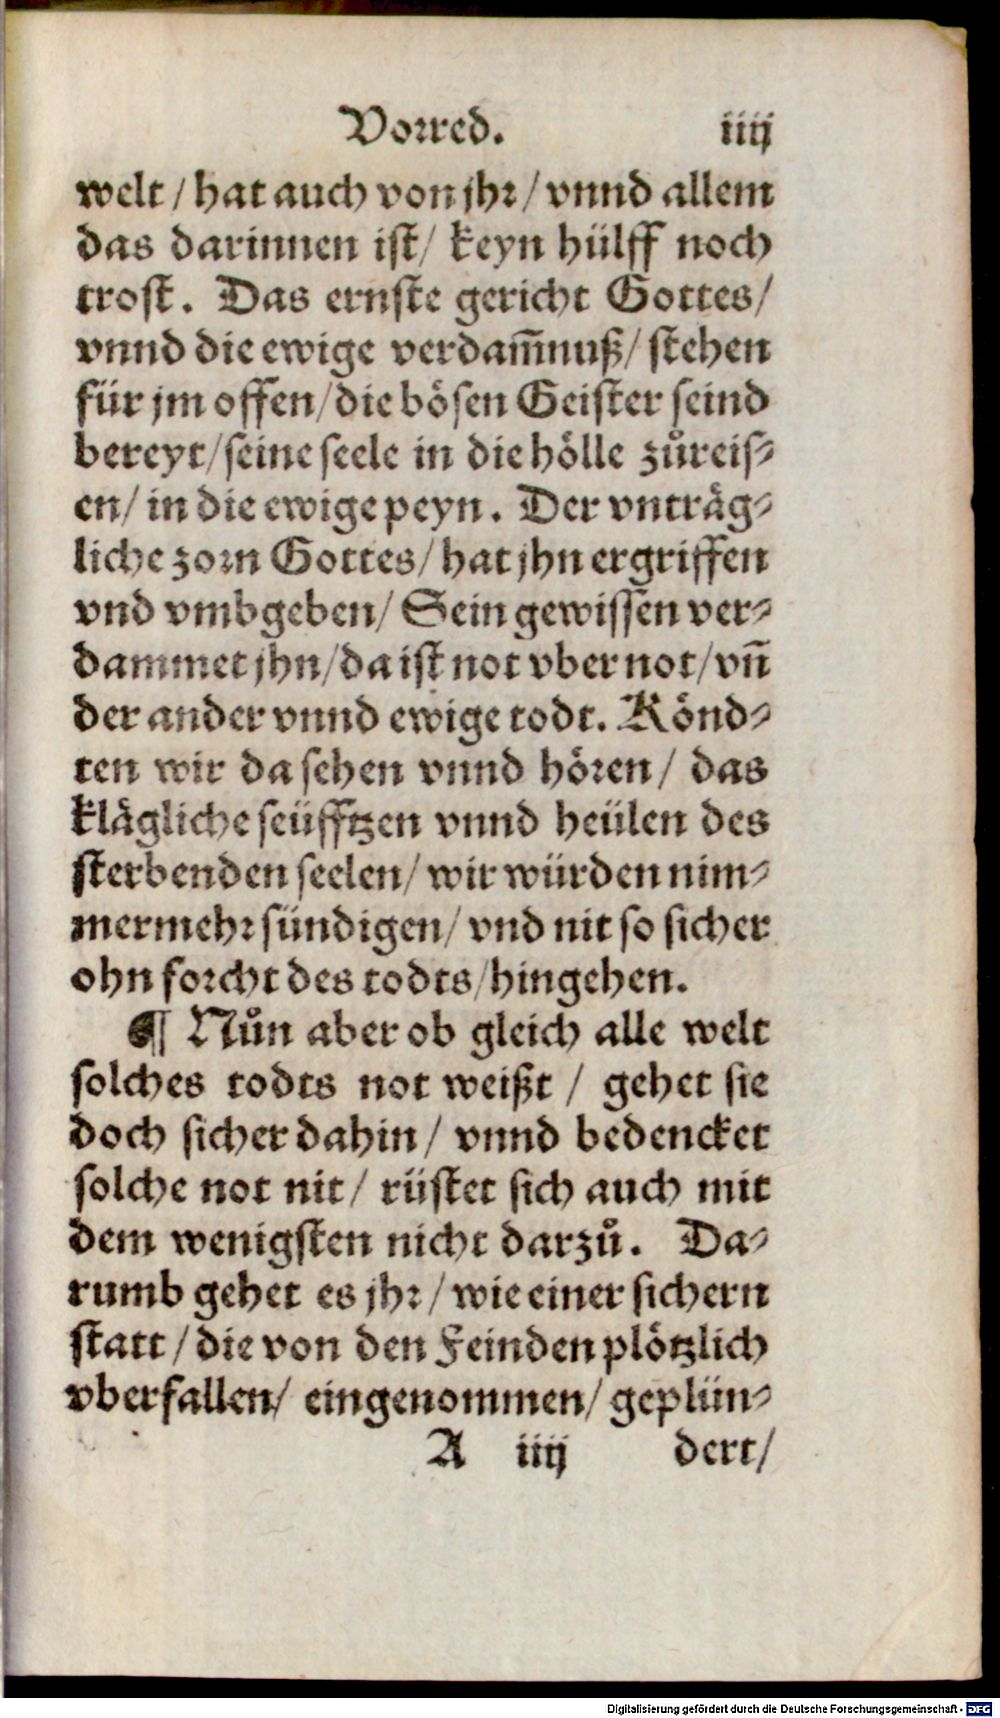 Vorred. iiij
welt / hat auch von jhr / vnnd allem
das darinnen ist / keyn hülff noch
trost. Das ernste gericht Gottes /
vnnd die ewige verdam̃nuß / stehen
für jm offen / die bösen Geister seind
bereyt / seine seele in die hölle zůreis⸗
en / in die ewige peyn. Der vnträg⸗
liche zorn Gottes / hat jhn ergriffen
vnd vmbgeben / Sein gewissen ver⸗
dammet jhn / da ist not vber not / vñ
der ander vnnd ewige todt. Könd⸗
ten wir da sehen vnnd hören / das
klägliche seüfftzen vnnd heülen des
sterbenden seelen / wir würden nim⸗
mermehr sündigen / vnd nit so sicher
ohn forcht des todts / hingehen.
¶ Nůn aber ob gleich alle welt
solches todts not weißt / gehet sie
doch sicher dahin / vnnd bedencket
solche not nit / rüstet sich auch mit
dem wenigsten nicht darzů. Da⸗
rumb gehet es jhr / wie einer sichern
statt / die von den Feinden plötzlich
vberfallen / eingenommen / geplün⸗
A iiij dert /
Digitalisierung gefördert durch die Deutsche Forschungsgemeinschaft - DFG